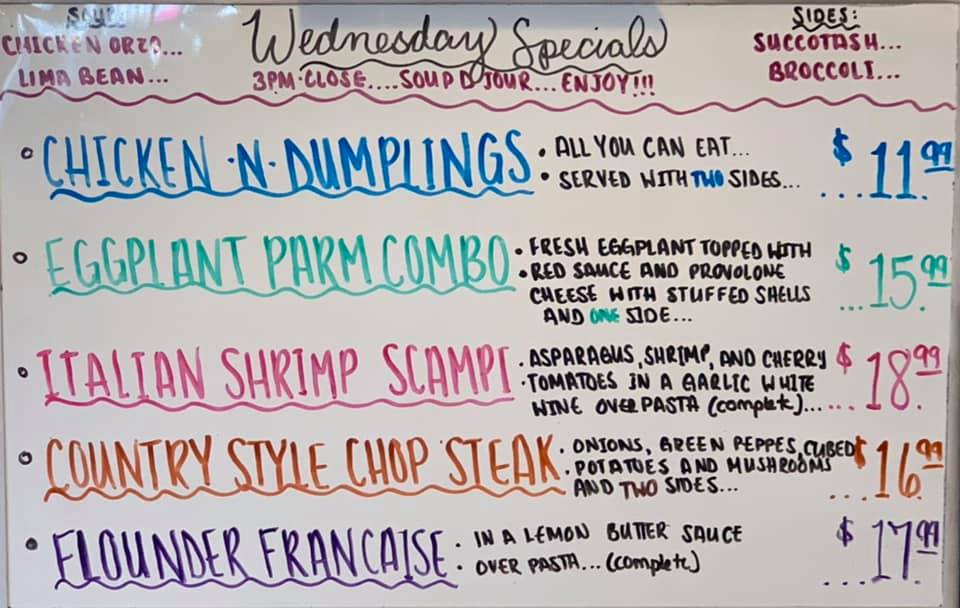 SOUP:
CHICKEN ORZO...
LIMA BEAN...
Wednesday Specials
3PM-CLOSE....SOUP D JOUR... ENJOY!!!
SIDES:
SUCCOTASH...
BROCCOLI...
CHICKEN ·N· DUMPLINGS
• ALL YOU CAN EAT...
• SERVED WITH TWO SIDES...
$ ...11.99
EGGPLANT PARM COMBO
• FRESH EGGPLANT TOPPED WITH
• RED SAUCE AND PROVOLONE
CHEESE WITH STUFFED SHELLS
AND ONE SIDE...
$ ...15.99
ITALIAN SHRIMP SCAMPI
• ASPARAGUS, SHRIMP, AND CHERRY
• TOMATOES IN A GARLIC WHITE
WINE OVER PASTA (complete)......
$ 18.99
COUNTRY STYLE CHOP STEAK
• ONIONS, GREEN PEPPES, CUBED
• POTATOES AND MUSHROOMS
AND TWO SIDES...
$ ...16.99
FLOUNDER FRANCAISE
• IN A LEMON BUTTER SAUCE
• OVER PASTA... (complete)
$ ....17.99